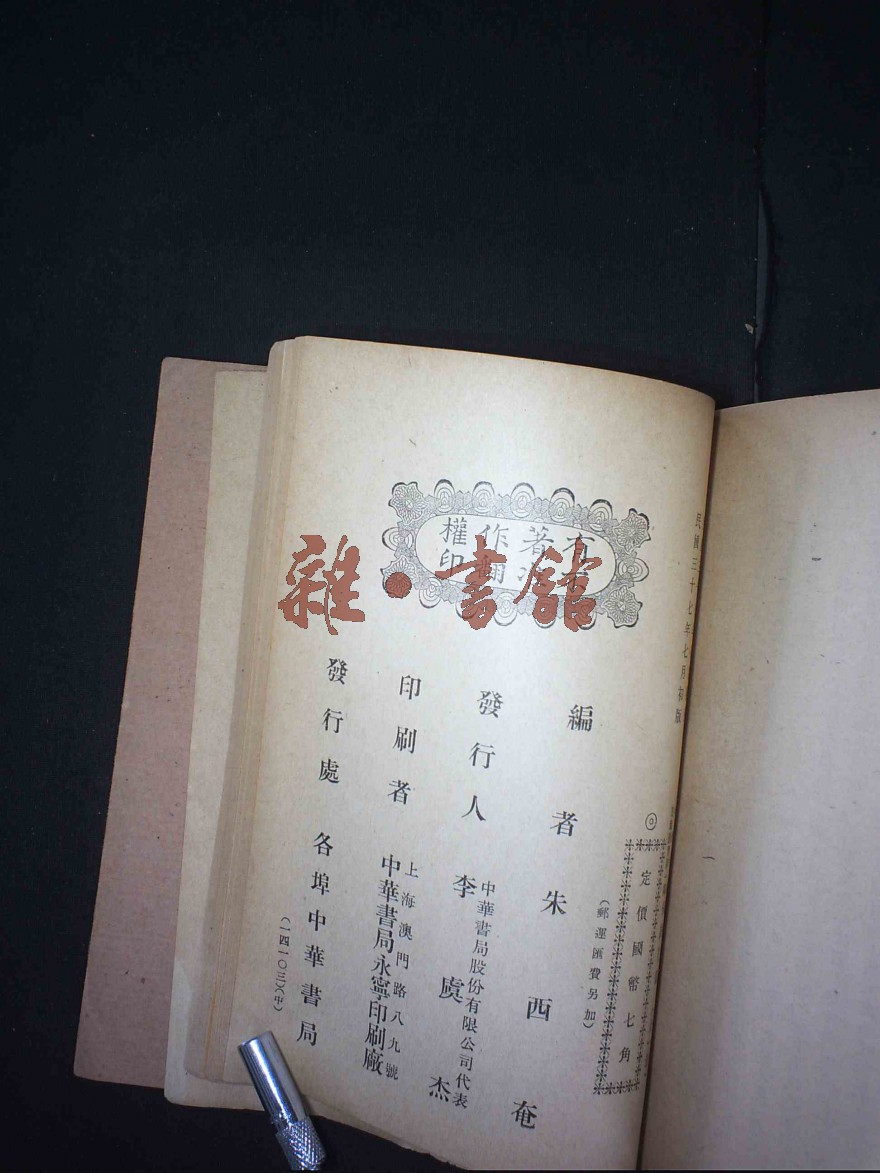 民國三十七年七月初版
◎定價國幣七角
（郵運匯費另加）
編者朱西奄
發行人中華書局股份有限公司代表
李虞杰
印刷者上海澳門路八九號
中華書局永寧印刷廠
發行處各埠中華書局
（一四一〇三）（中）
著作權
翻印
雜·書館